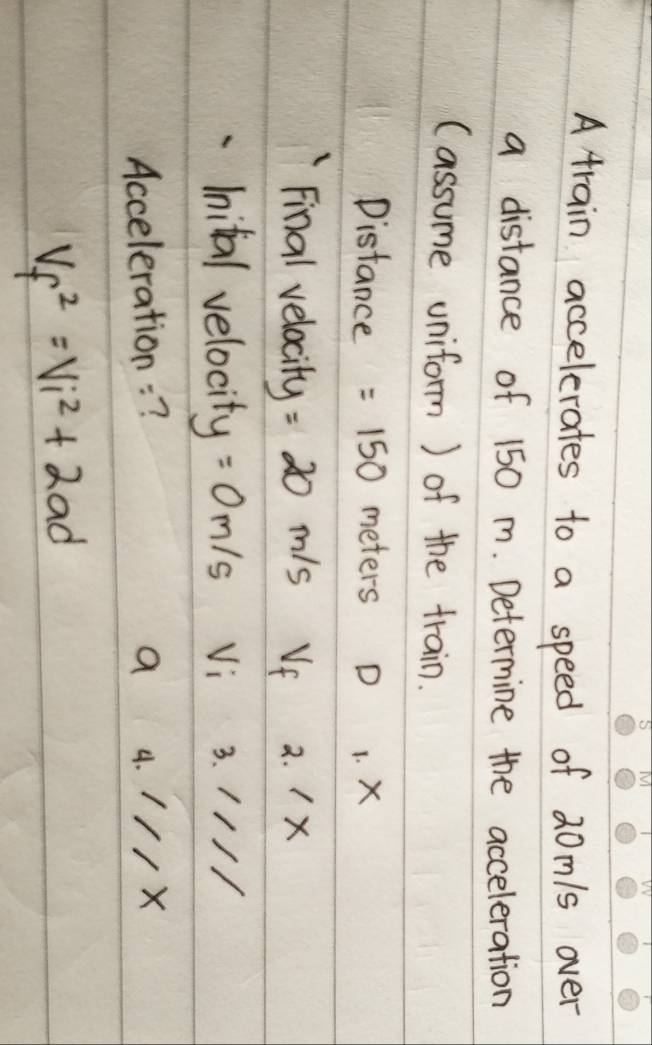 S M T W T F
A train accelerates to a speed of 20m/s over
a distance of 150 m. Determine the acceleration
(assume uniform) of the train.
Distance = 150 meters D 1. X
` Final velocity = 20 m/s Vf 2. / X
` Inital velocity = 0m/s Vi 3. / / / /
Acceleration = ? a 4. / / / X
Vf² = Vi² + 2ad